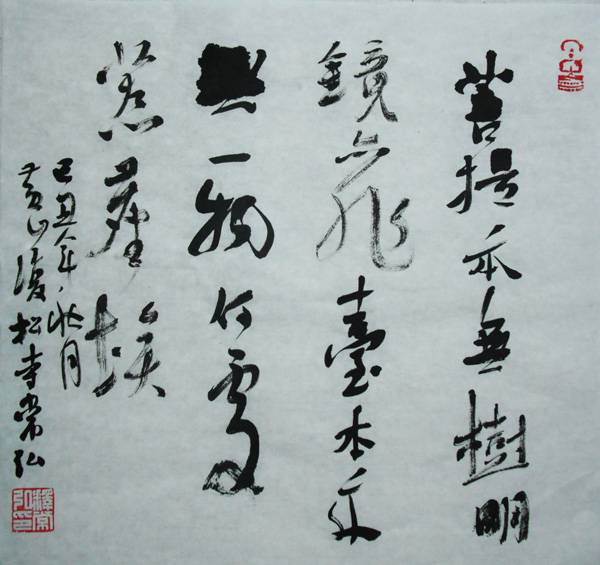 菩提本無樹明
鏡亦非臺本來
無一物何處
惹塵埃
己丑年秋月
黄山松寺常弘
釋常弘印